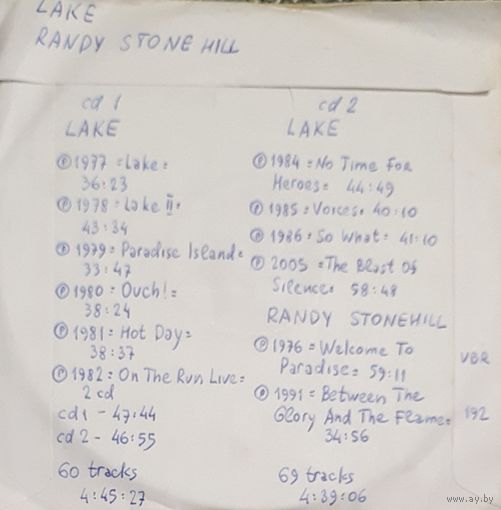 LAKE
RANDY STONEHILL
cd 1
LAKE
℗ 1977 = Lake =
36:23
℗ 1978 = Lake II =
43:34
℗ 1979 = Paradise Island =
33:47
℗ 1980 = Ouch! =
38:24
℗ 1981 = Hot Day =
38:37
℗ 1982 = On The Run Live =
2 cd
cd 1 - 47:44
cd 2 - 46:55
60 tracks
4:45:27
cd 2
LAKE
℗ 1984 = No Time For
Heroes = 44:49
℗ 1985 = Voices = 40:10
℗ 1986 = So What = 41:10
℗ 2005 = The Blast Of
Silence = 58:48
RANDY STONEHILL
℗ 1976 = Welcome To
Paradise = 59:11
℗ 1991 = Between The
Glory And The Flame =
34:56
69 tracks
4:39:06
VBR
192
www.ay.by